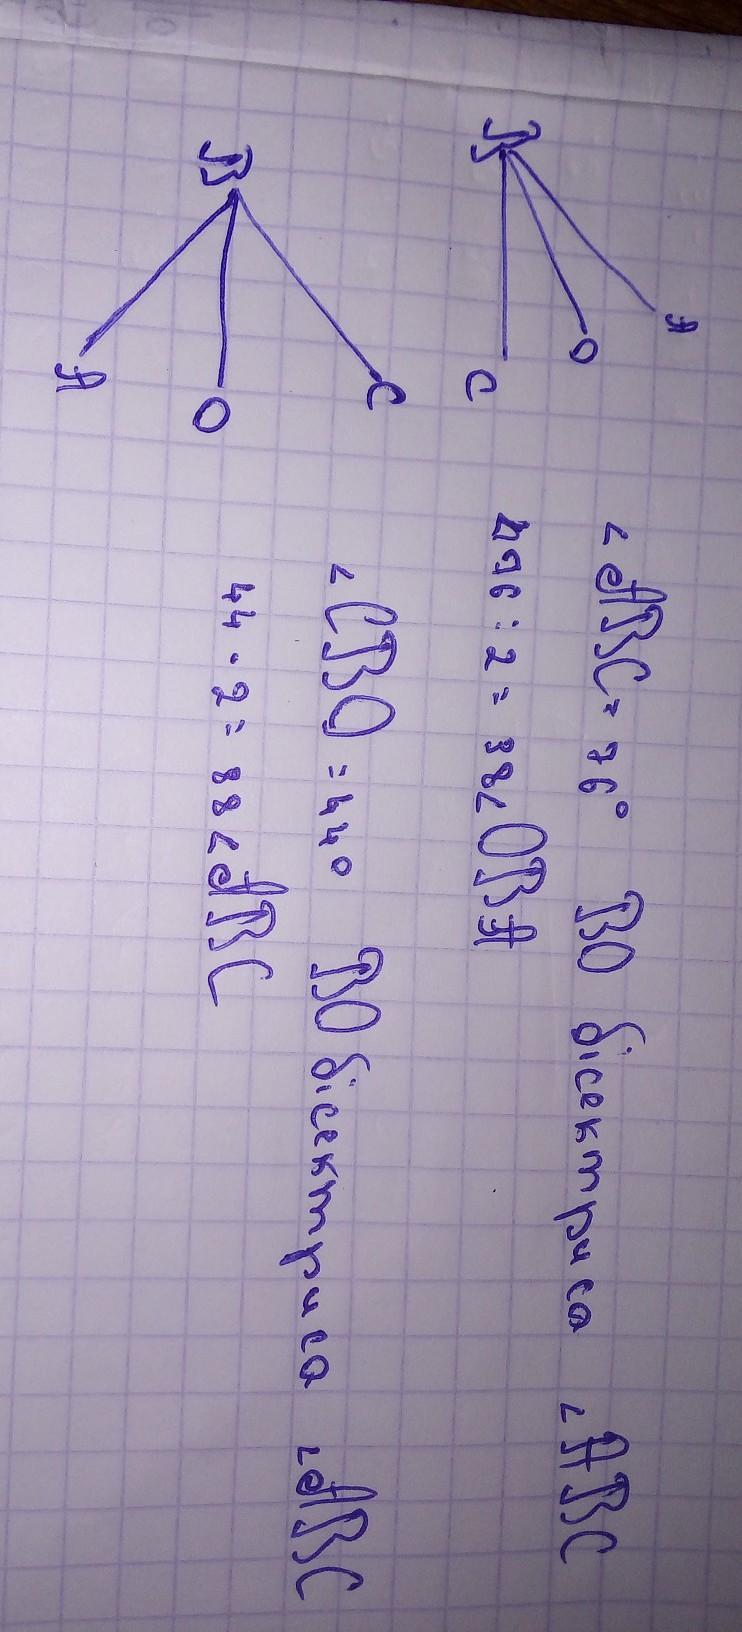 B
A
O
C
∠ABC = 76° BO бісектриса ∠ABC
76 : 2 = 38∠OBA
B
C
O
A
∠CBO = 44° BO бісектриса ∠ABC
44 · 2 = 88∠ABC